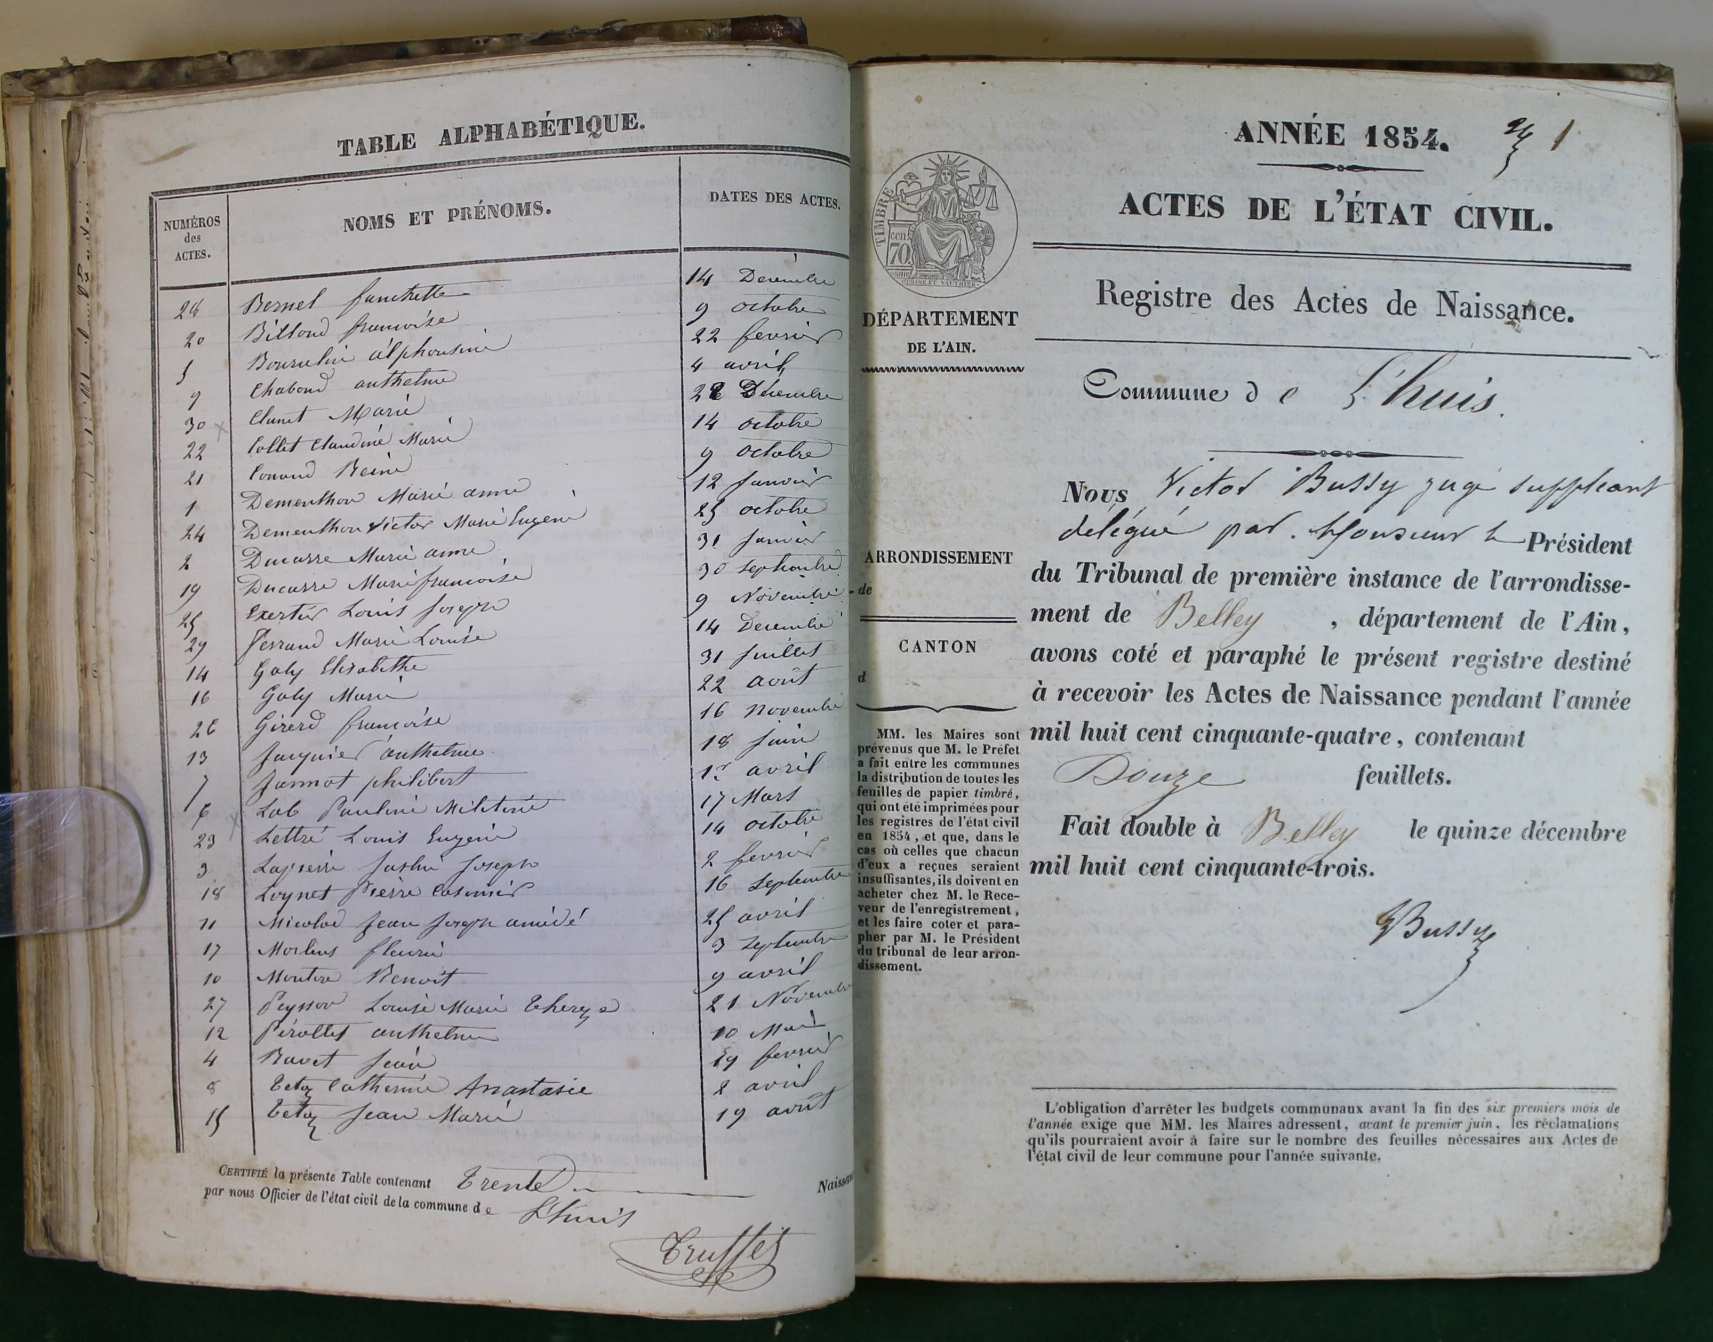 TABLE ALPHABÉTIQUE.
NUMÉROS des ACTES.
NOMS ET PRÉNOMS.
DATES DES ACTES.
28 Bernel fanchette 14 Decembre
20 Billoud francoise 9 octobre
5 alphonsine 22 fevrier
9 Chaboud anthelme 4 avril
30 Marie 28 Décembre
22 Collet Claudine Marie 14 octobre
21 Reine 9 octobre
1 Dementhon Marie anne 12 Janvier
24 Dementhon victor Marie Eugene 25 octobre
2 Ducarre Marie anne 31 Janvier
19 Ducarre Marie francoise 30 septembre
25 Exertier Louis Joseph 9 Novembre
29 ferrand Marie Louise 14 Decembre
14 Galy Elisabethe 31 Juillet
16 Galy Marie 22 août
26 Girerd francoise 16 novembre
13 Jacquier anthelme 18 juin
7 Jannot philibert 1er avril
6 Lab Pauline 17 Mars
23 Lettré Louis Eugene 14 octobre
3 Joseph 2 fevrier
18 Loynet Pierre Casimir 16 septembre
11 Micolod Jean Joseph amédé 25 avril
17 fleurie 3 septembre
10 Benoit 9 avril
27 Peysson Louise Marie Therese 21 Novembre
12 Pérollet anthelme 10 Mai
4 Ravet Jean 19 fevrier
8 Tetaz Catherine Anastasie 2 avril
15 Tetaz Jean Marie 19 août
CERTIFIÉ la présente Table contenant Trente Naissan
par nous Officier de l'état civil de la commune de L'huis
Truffet
TIMBRE
70 cen
DÉPARTEMENT
DE L'AIN.
ARRONDISSEMENT
de
CANTON
d
MM. les Maires sont
prévenus que M. le Préfet
a fait entre les communes
la distribution de toutes les
feuilles de papier timbré,
qui ont été imprimées pour
les registres de l'état civil
en 1854, et que, dans le
cas où celles que chacun
d'eux a reçues seraient
insuffisantes, ils doivent en
acheter chez M. le Rece-
veur de l'enregistrement,
et les faire coter et para-
pher par M. le Président
du tribunal de leur arron-
dissement.
ANNÉE 1854. 1
ACTES DE L'ÉTAT CIVIL.
Registre des Actes de Naissance.
Commune de L'huis.
Nous Victor Bussy juge suppleant
delégué par Monsieur le Président
du Tribunal de première instance de l'arrondisse-
ment de Belley, département de l'Ain,
avons coté et paraphé le présent registre destiné
à recevoir les Actes de Naissance pendant l'année
mil huit cent cinquante-quatre, contenant
Douze feuillets.
Fait double à Belley le quinze décembre
mil huit cent cinquante-trois.
Bussy
L'obligation d'arrêter les budgets communaux avant la fin des six premiers mois de
l'année exige que MM. les Maires adressent, avant le premier juin, les réclamations
qu'ils pourraient avoir à faire sur le nombre des feuilles nécessaires aux Actes de
l'état civil de leur commune pour l'année suivante.